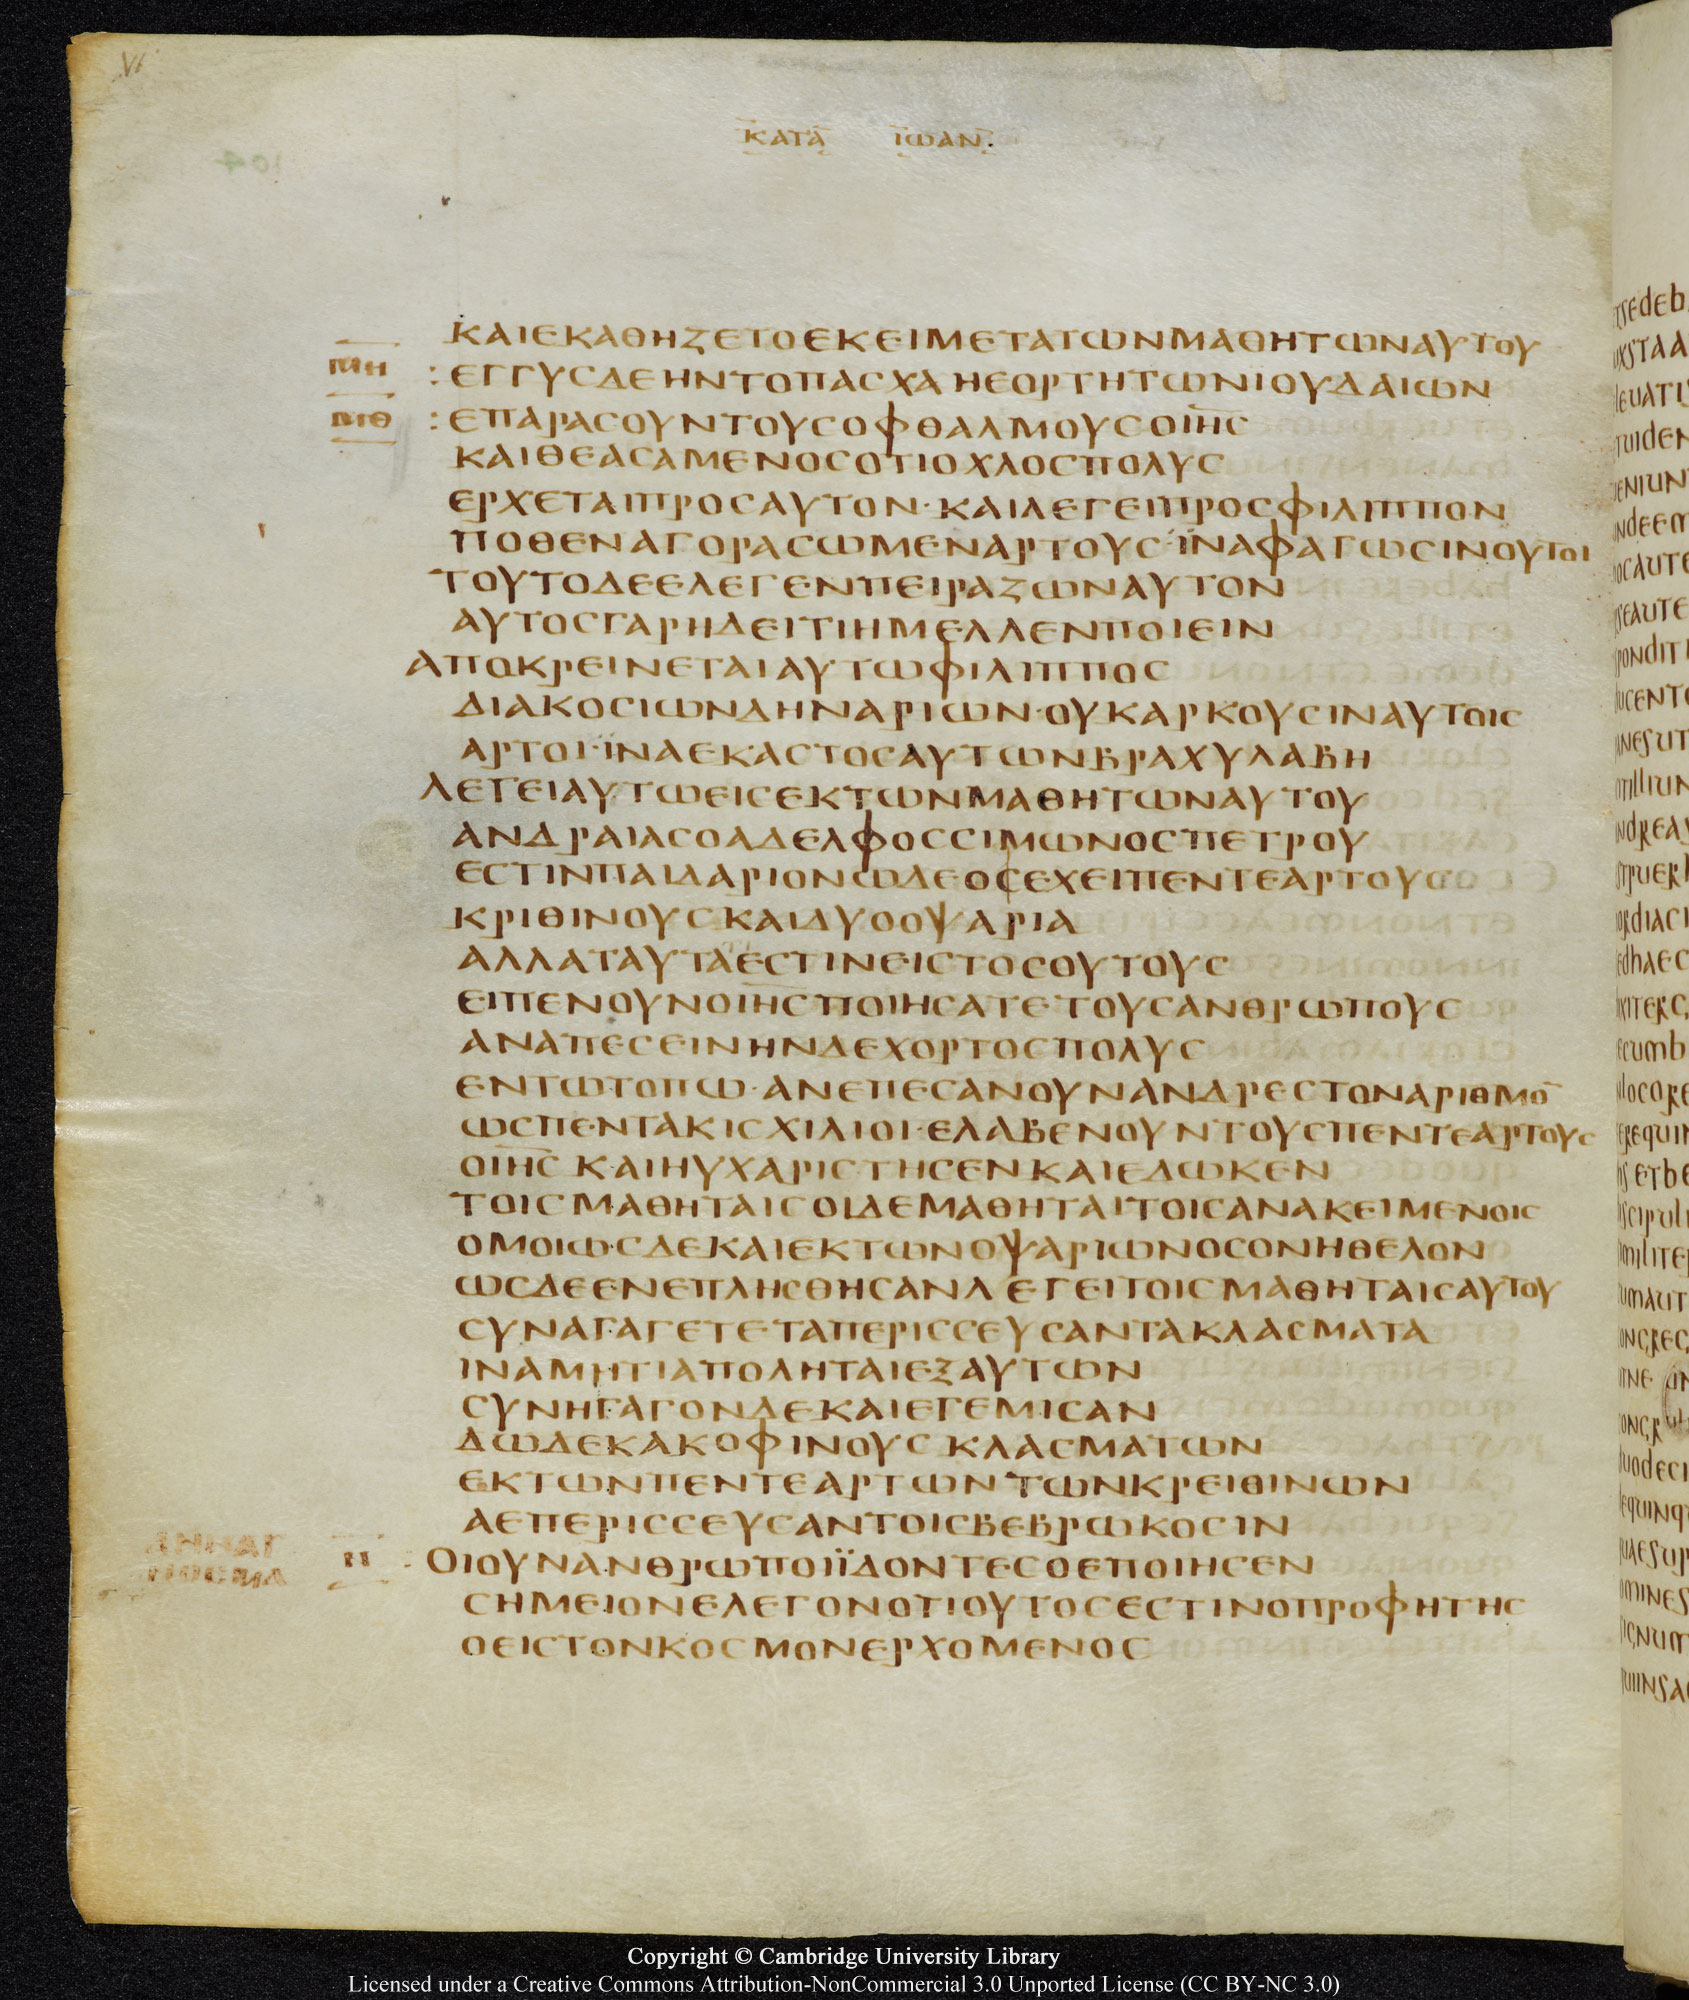 VI
ΚΑΤΑ ΙΩΑΝ.
ΚΑΙΕΚΑΘΗΖΕΤΟΕΚΕΙΜΕΤΑΤΩΝΜΑΘΗΤΩΝΑΥΤΟΥ
ΜΗ :ΕΓΓΥϹΔΕΗΝΤΟΠΑϹΧΑΗΕΟΡΤΗΤΩΝΙΟΥΔΑΙΩΝ
ΜΘ :ΕΠΑΡΑϹΟΥΝΤΟΥϹΟΦΘΑΛΜΟΥϹΟΙΗϹ
ΚΑΙΘΕΑϹΑΜΕΝΟϹΟΤΙΟΧΛΟϹΠΟΛΥϹ
ΕΡΧΕΤΑΙΠΡΟϹΑΥΤΟΝ·ΚΑΙΛΕΓΕΙΠΡΟϹΦΙΛΙΠΠΟΝ
ΠΟΘΕΝΑΓΟΡΑϹΩΜΕΝΑΡΤΟΥϹ·ΪΝΑΦΑΓΩϹΙΝΟΥΤΟΙ
ΤΟΥΤΟΔΕΕΛΕΓΕΝΠΕΙΡΑΖΩΝΑΥΤΟΝ
ΑΥΤΟϹΓΑΡΗΔΕΙΤΙΗΜΕΛΛΕΝΠΟΙΕΙΝ
ΑΠΟΚΡΕΙΝΕΤΑΙΑΥΤΩΦΙΛΙΠΠΟϹ
ΔΙΑΚΟϹΙΩΝΔΗΝΑΡΙΩΝ·ΟΥΚΑΡΚΟΥϹΙΝΑΥΤΟΙϹ
ΑΡΤΟΙ·ΪΝΑΕΚΑϹΤΟϹΑΥΤΩΝΒΡΑΧΥΛΑΒΗ
ΛΕΓΕΙΑΥΤΩΕΙϹΕΚΤΩΝΜΑΘΗΤΩΝΑΥΤΟΥ
ΑΝΔΡΑΙΑϹΟΑΔΕΛΦΟϹϹΙΜΩΝΟϹΠΕΤΡΟΥ
ΕϹΤΙΝΠΑΙΔΑΡΙΟΝΩΔΕΟϹΕΧΕΙΠΕΝΤΕΑΡΤΟΥϹ
ΚΡΙΘΙΝΟΥϹΚΑΙΔΥΟΟΨΑΡΙΑ
ΑΛΛΑΤΑΥΤΑΕϹΤΙΝΕΙϹΤΟϹΟΥΤΟΥϹ
ΕΙΠΕΝΟΥΝΟΙΗϹΠΟΙΗϹΑΤΕ·ΤΟΥϹΑΝΘΡΩΠΟΥϹ
ΑΝΑΠΕϹΕΙΝΗΝΔΕΧΟΡΤΟϹΠΟΛΥϹ
ΕΝΤΩΤΟΠΩ·ΑΝΕΠΕϹΑΝΟΥΝΑΝΔΡΕϹΤΟΝΑΡΙΘΜΟ̅
ΩϹΠΕΝΤΑΚΙϹΧΙΛΙΟΙ·ΕΛΑΒΕΝΟΥΝΤΟΥϹΠΕΝΤΕΑΡΤΟΥϹ
ΟΙΗϹ ΚΑΙΗΥΧΑΡΙϹΤΗϹΕΝΚΑΙΕΔΩΚΕΝ
ΤΟΙϹΜΑΘΗΤΑΙϹΟΙΔΕΜΑΘΗΤΑΙΤΟΙϹΑΝΑΚΕΙΜΕΝΟΙϹ
ΟΜΟΙΩϹΔΕΚΑΙΕΚΤΩΝΟΨΑΡΙΩΝΟϹΟΝΗΘΕΛΟΝ
ΩϹΔΕΕΝΕΠΛΗϹΘΗϹΑΝΛΕΓΕΙΤΟΙϹΜΑΘΗΤΑΙϹΑΥΤΟΥ
ϹΥΝΑΓΑΓΕΤΕ·ΤΑΠΕΡΙϹϹΕΥϹΑΝΤΑΚΛΑϹΜΑΤΑ
ΙΝΑΜΗΤΙΑΠΟΛΗΤΑΙΕΞΑΥΤΩΝ
ϹΥΝΗΓΑΓΟΝΔΕΚΑΙΕΓΕΜΙϹΑΝ
ΔΩΔΕΚΑΚΟΦΙΝΟΥϹΚΛΑϹΜΑΤΩΝ
ΕΚΤΩΝΠΕΝΤΕΑΡΤΩΝΤΩΝΚΡΕΙΘΙΝΩΝ
ΑΕΠΕΡΙϹϹΕΥϹΑΝΤΟΙϹΒΕΒΡΩΚΟϹΙΝ
Ν ·ΟΙΟΥΝΑΝΘΡΩΠΟΙΪΔΟΝΤΕϹΟΕΠΟΙΗϹΕΝ
ϹΗΜΕΙΟΝΕΛΕΓΟΝΟΤΙΟΥΤΟϹΕϹΤΙΝΟΠΡΟΦΗΤΗϹ
ΟΕΙϹΤΟΝΚΟϹΜΟΝΕΡΧΟΜΕΝΟϹ
Copyright © Cambridge University Library
Licensed under a Creative Commons Attribution-NonCommercial 3.0 Unported License (CC BY-NC 3.0)